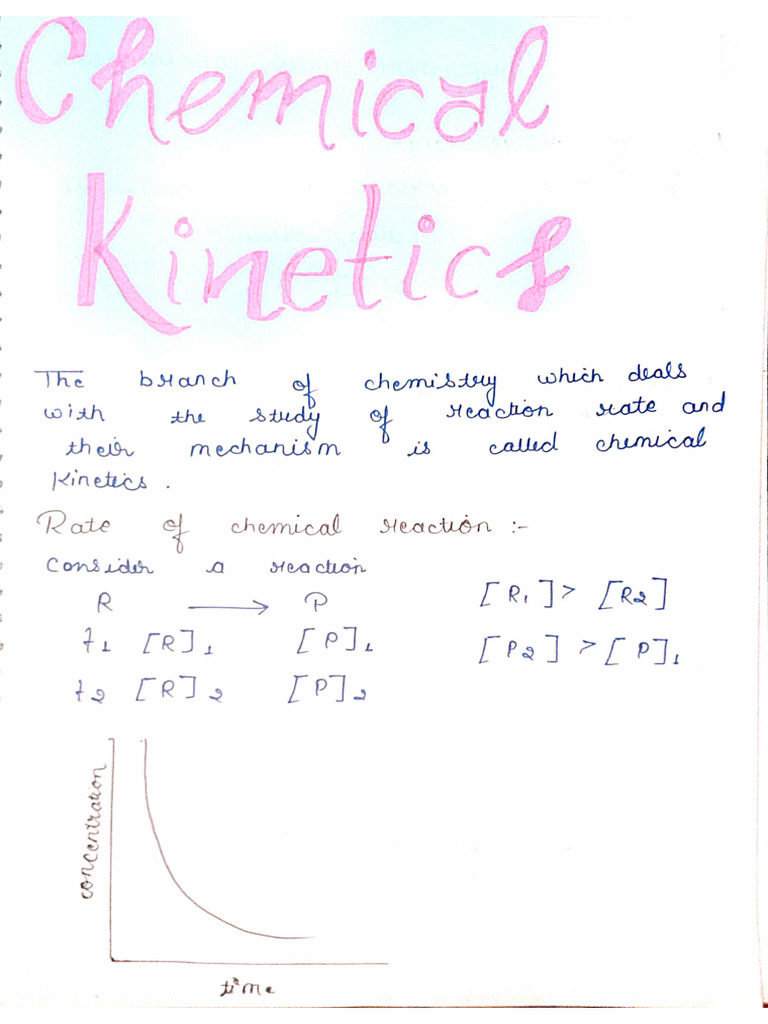 Chemical
Kinetics
The branch of chemistry which deals
with the study of reaction rate and
their mechanism is called chemical
Kinetics.
Rate of chemical reaction :-
Consider a reaction
R ⟶ P
t₁ [R]₁ [P]₁
t₂ [R]₂ [P]₂
[R₁] > [R₂]
[P₂] > [P]₁
concentration
time